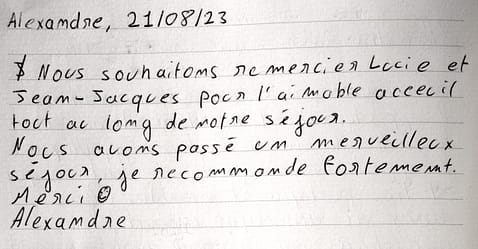 Alexandre, 21/08/23
Nous souhaitons remercier Lucie et
Jean-Jacques pour l'aimable acceuil
tout au long de notre séjour.
Nous avons passé un merveilleux
séjour, je recommande fortement.
Merci
Alexandre